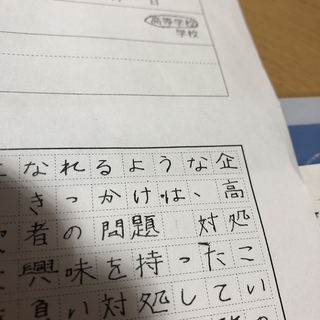 日
高等学校
学校
なれるような企
きっかけは、高
者の問題 対処
興味を持ったこ
負い対処してい